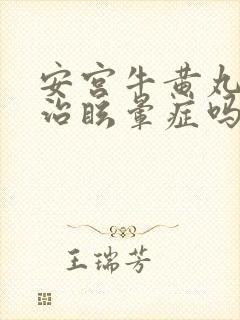 安宫牛黄丸
治眩晕症吗
王瑞芳